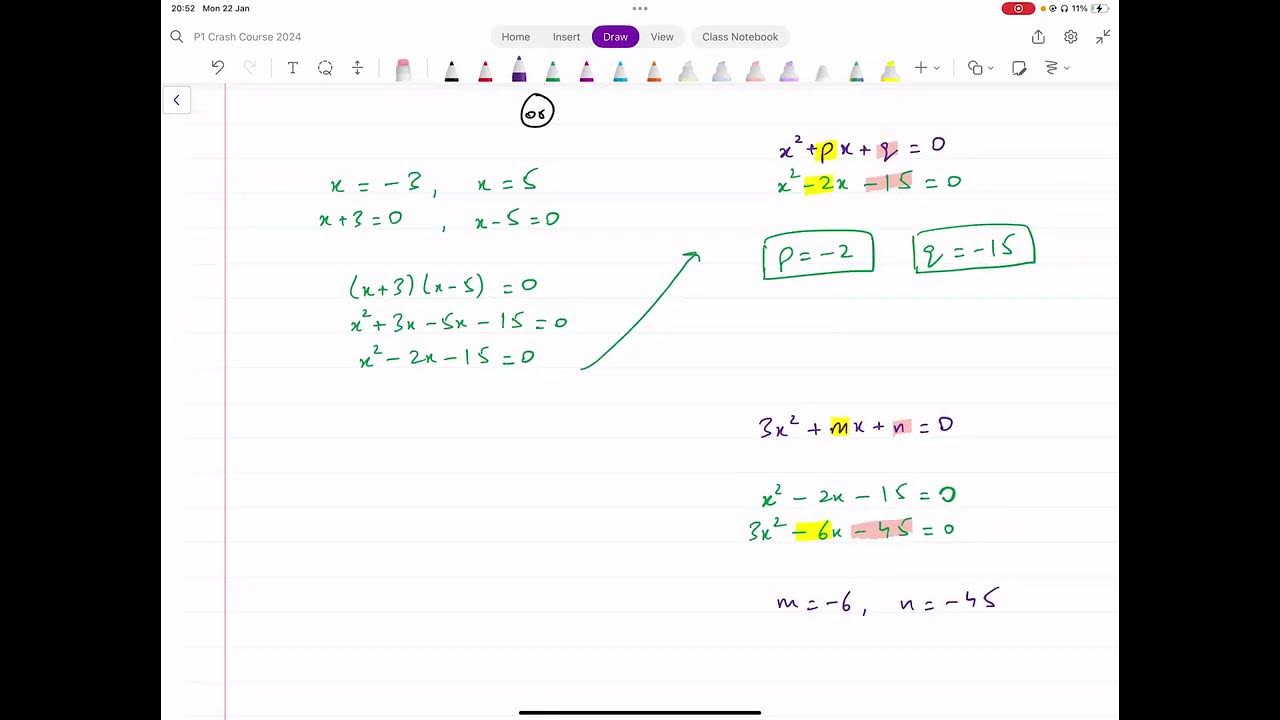 20:52 Mon 22 Jan
11%
P1 Crash Course 2024
Home Insert Draw View Class Notebook
or
x = -3, x = 5
x+3=0, x-5=0
(x+3)(x-5) = 0
x²+3x-5x-15=0
x²-2x-15=0
x²+px+q=0
x²-2x-15=0
p=-2 q=-15
3x²+mx+n=0
x²-2x-15=0
3x²-6x-45=0
m=-6, n=-45